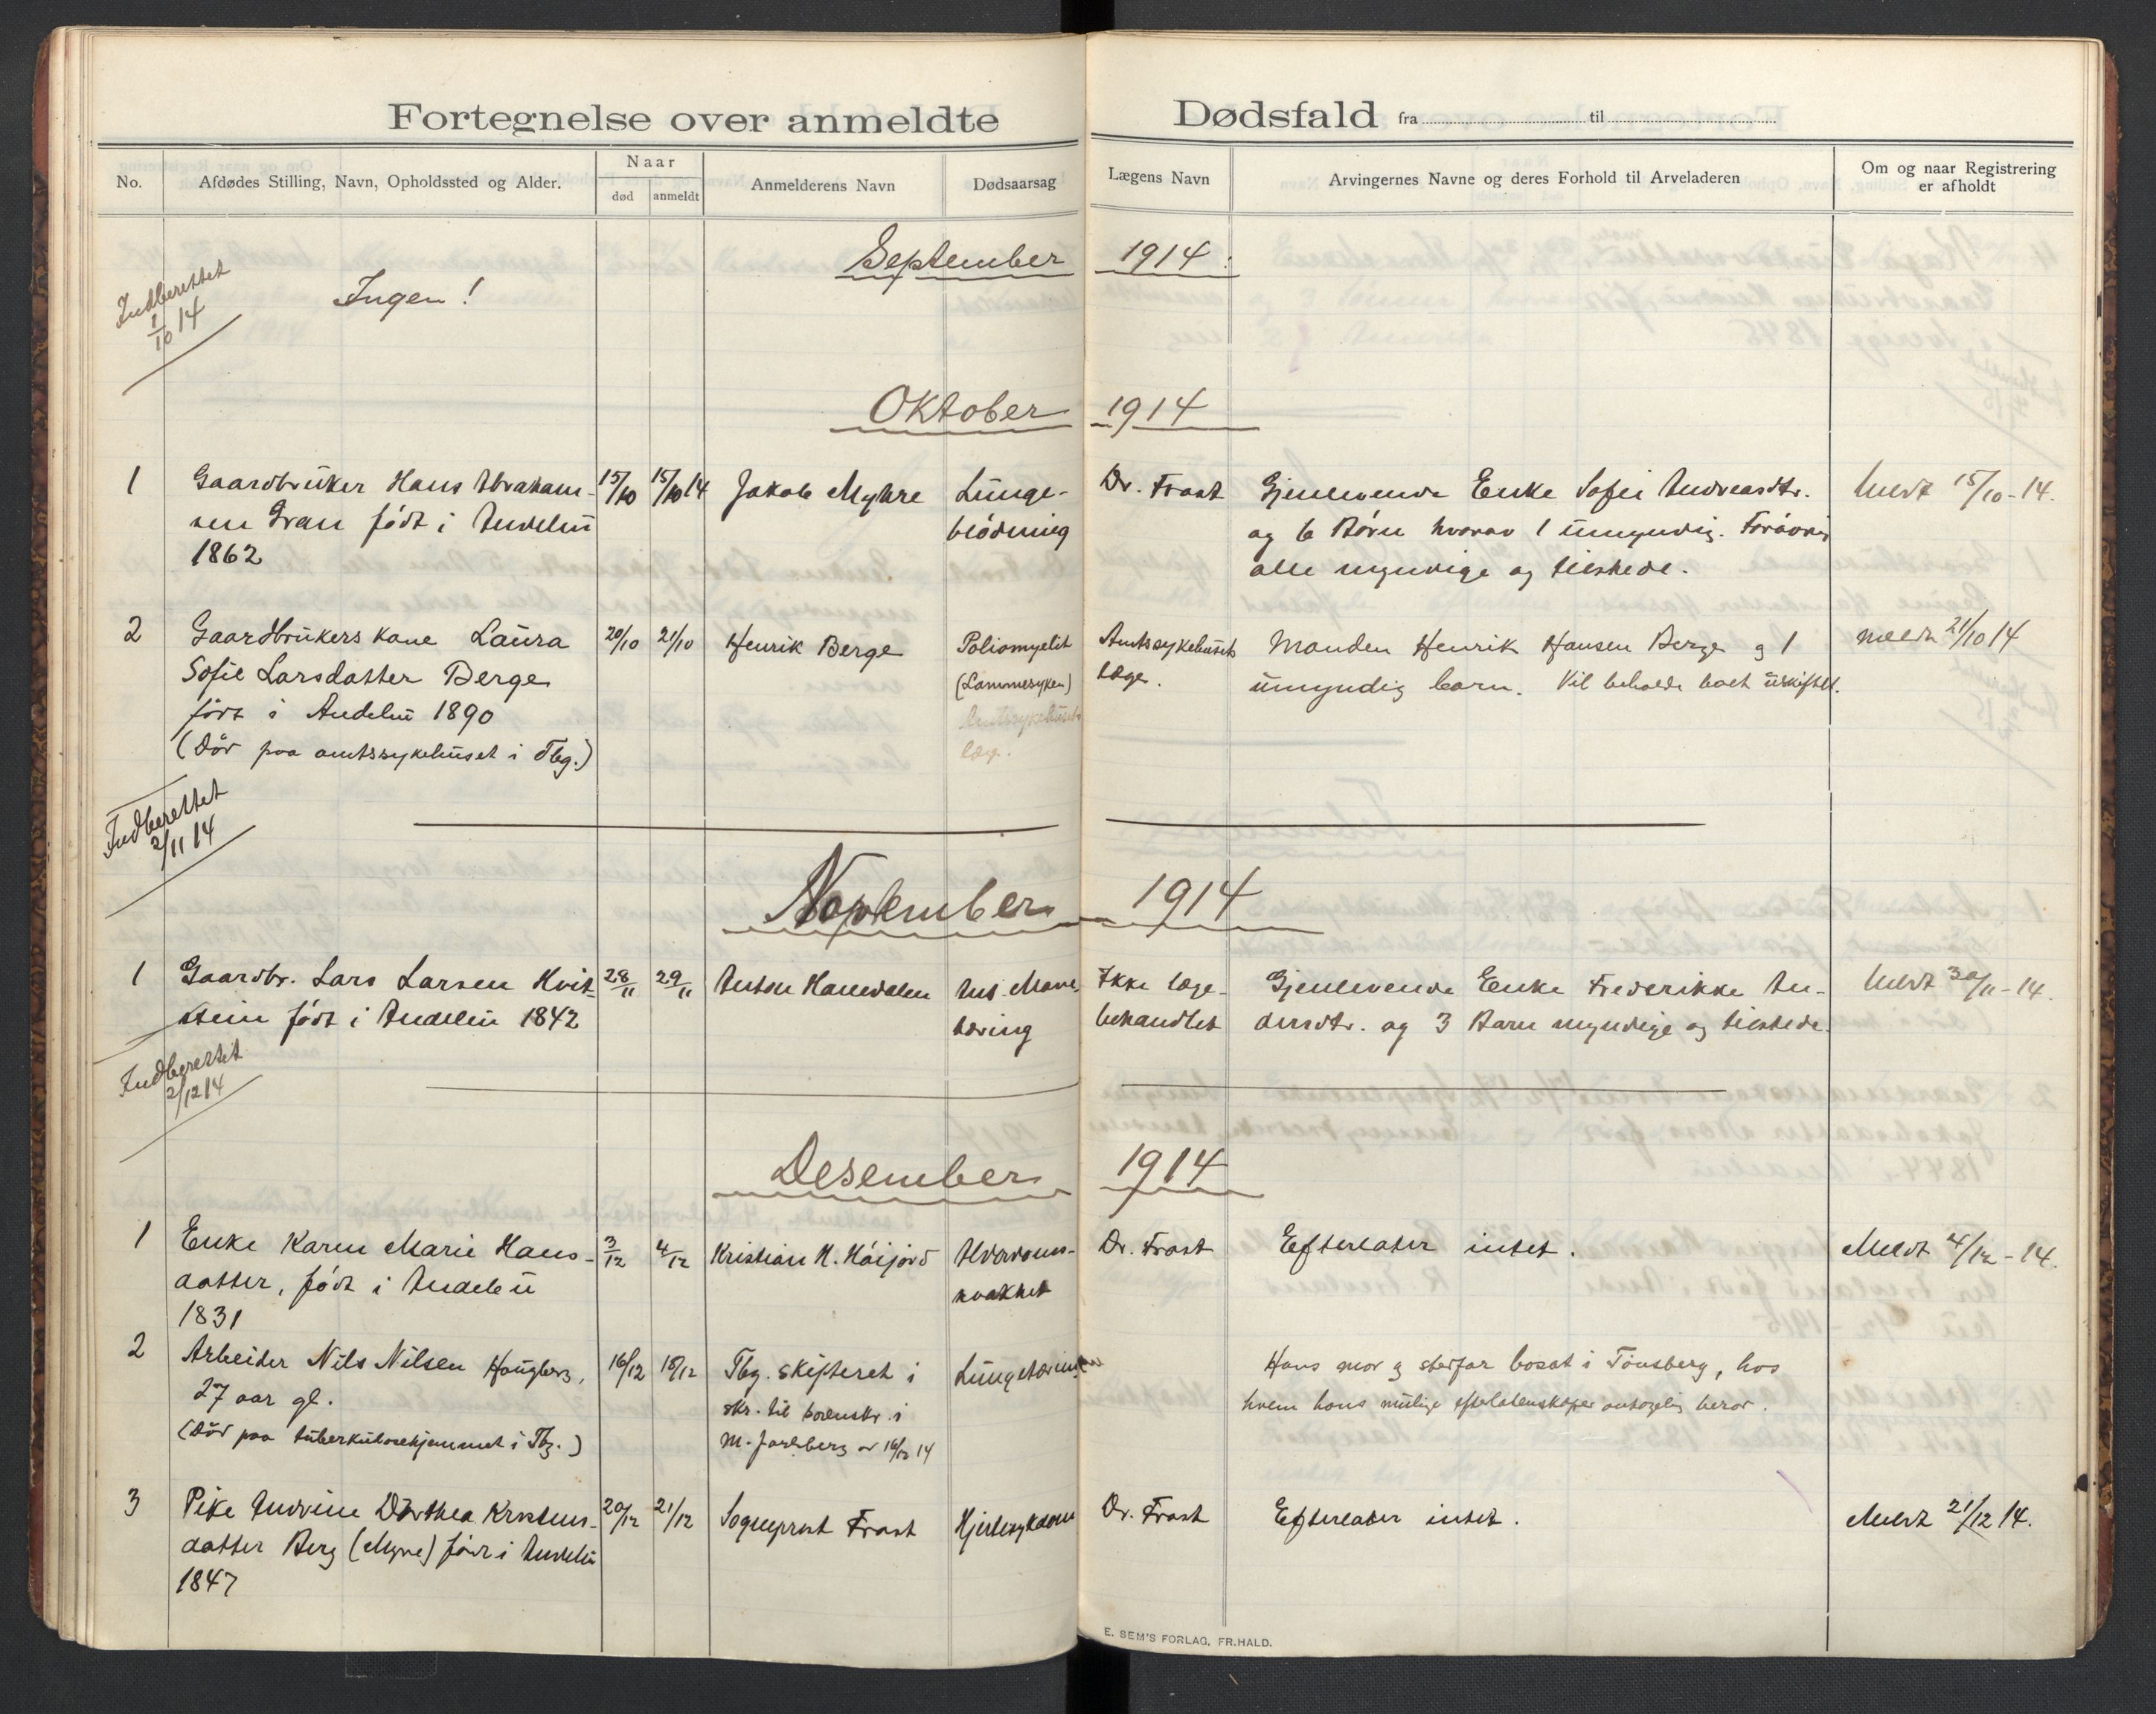 Fortegnelse over anmeldte Dødsfald fra til
No.
Afdødes Stilling, Navn, Opholdssted og Alder.
Naar
død anmeldt
Anmelderens Navn
Dødsaarsag
Lægens Navn
Arvingernes Navne og deres Forhold til Arveladeren
Om og naar Registrering
er afholdt
September 1914.
Indberettet
1/10 14
Ingen!
Oktober 1914
1
Gaardbruker Hans Abraham-
sen Gran født i Andebu
1862
15/10
15/10 14
Jakob Myhre
Lunge-
blödning
Dr. Frost
Gjenlevende Enke Sofie Andreasdtr.
og 6 Børn hvorav 1 umyndig. Forøvrig
alle myndige og tilstede.
Meldt 15/10-14.
2
Gaardbrukers kone Laura
Sofie Larsdatter Berge
født i Andebu 1890
(Dör paa amtssykehuset i Tbg.)
20/10
21/10
Henrik Berge
Poliomyelit
(Lammesyken)
Amtssykehusets
læge.
Amtssykehusets
læge.
Manden Henrik Hansen Berge og 1
umyndig barn. Vil beholde boet uskiftet.
Meldt 21/10 14
Indberettet
2/11 14
November 1914
1
Gaardbr. Lars Larsen Hvit-
stein født i Andebu 1842
28/11
29/11
Anton Hanedalen
Ans. Mave
tæring
Ikke læge-
behandlet
Gjenlevende Enke Frederikke An-
dersdtr. og 3 Barn myndige og tilstede.
Meldt 30/11-14.
Indberettet
2/12 14
Desember 1914
1
Enke Karen Marie Hans-
datter, født i Andebu
1831
3/12
4/12
Kristian H. Höijord
Alderdoms-
svakhet
Dr. Frost
Efterlater intet.
Meldt 4/12-14.
2
Arbeider Nils Nilsen Haugberg,
27 aar gl.
(Dör paa tuberkulosehjemmet i Tbg.)
16/12
18/12
Tbg. skifteret i
skr. til sorenskr. i
M. Jarlsberg av 16/12 14
Lungetæring
Hans mor og stefar bosat i Tönsberg, hos
hvem hans mulige efterladenskaper antagelig beror.
3
Pike Andrine Dorthea Kristens-
datter Berg (Myre) født i Andebu
1847
20/12
21/12
Sogneprest Frost
Hjertesykdom
Dr. Frost
Efterlater intet.
Meldt 21/12 14.
E. SEM'S FORLAG, FR.HALD.